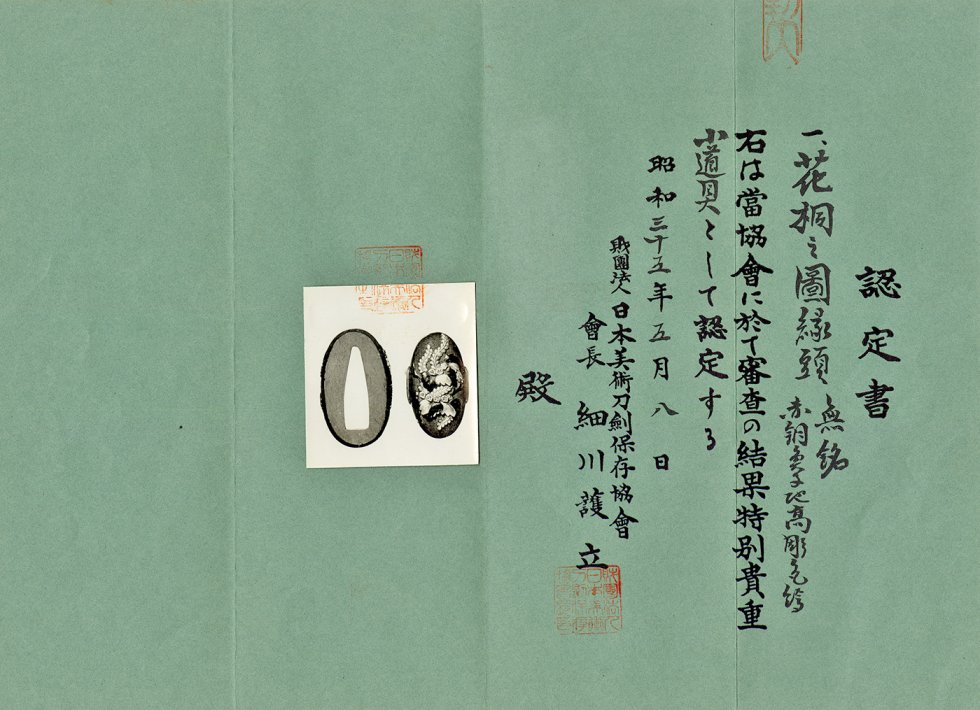 認定書
一、花桐之圖縁頭 無銘
赤銅魚子地高彫色絵
右は當協會に於て審査の結果特別貴重
小道具として認定する
昭和三十五年五月八日
財團法人 日本美術刀劍保存協會
會長 細川護立
殿